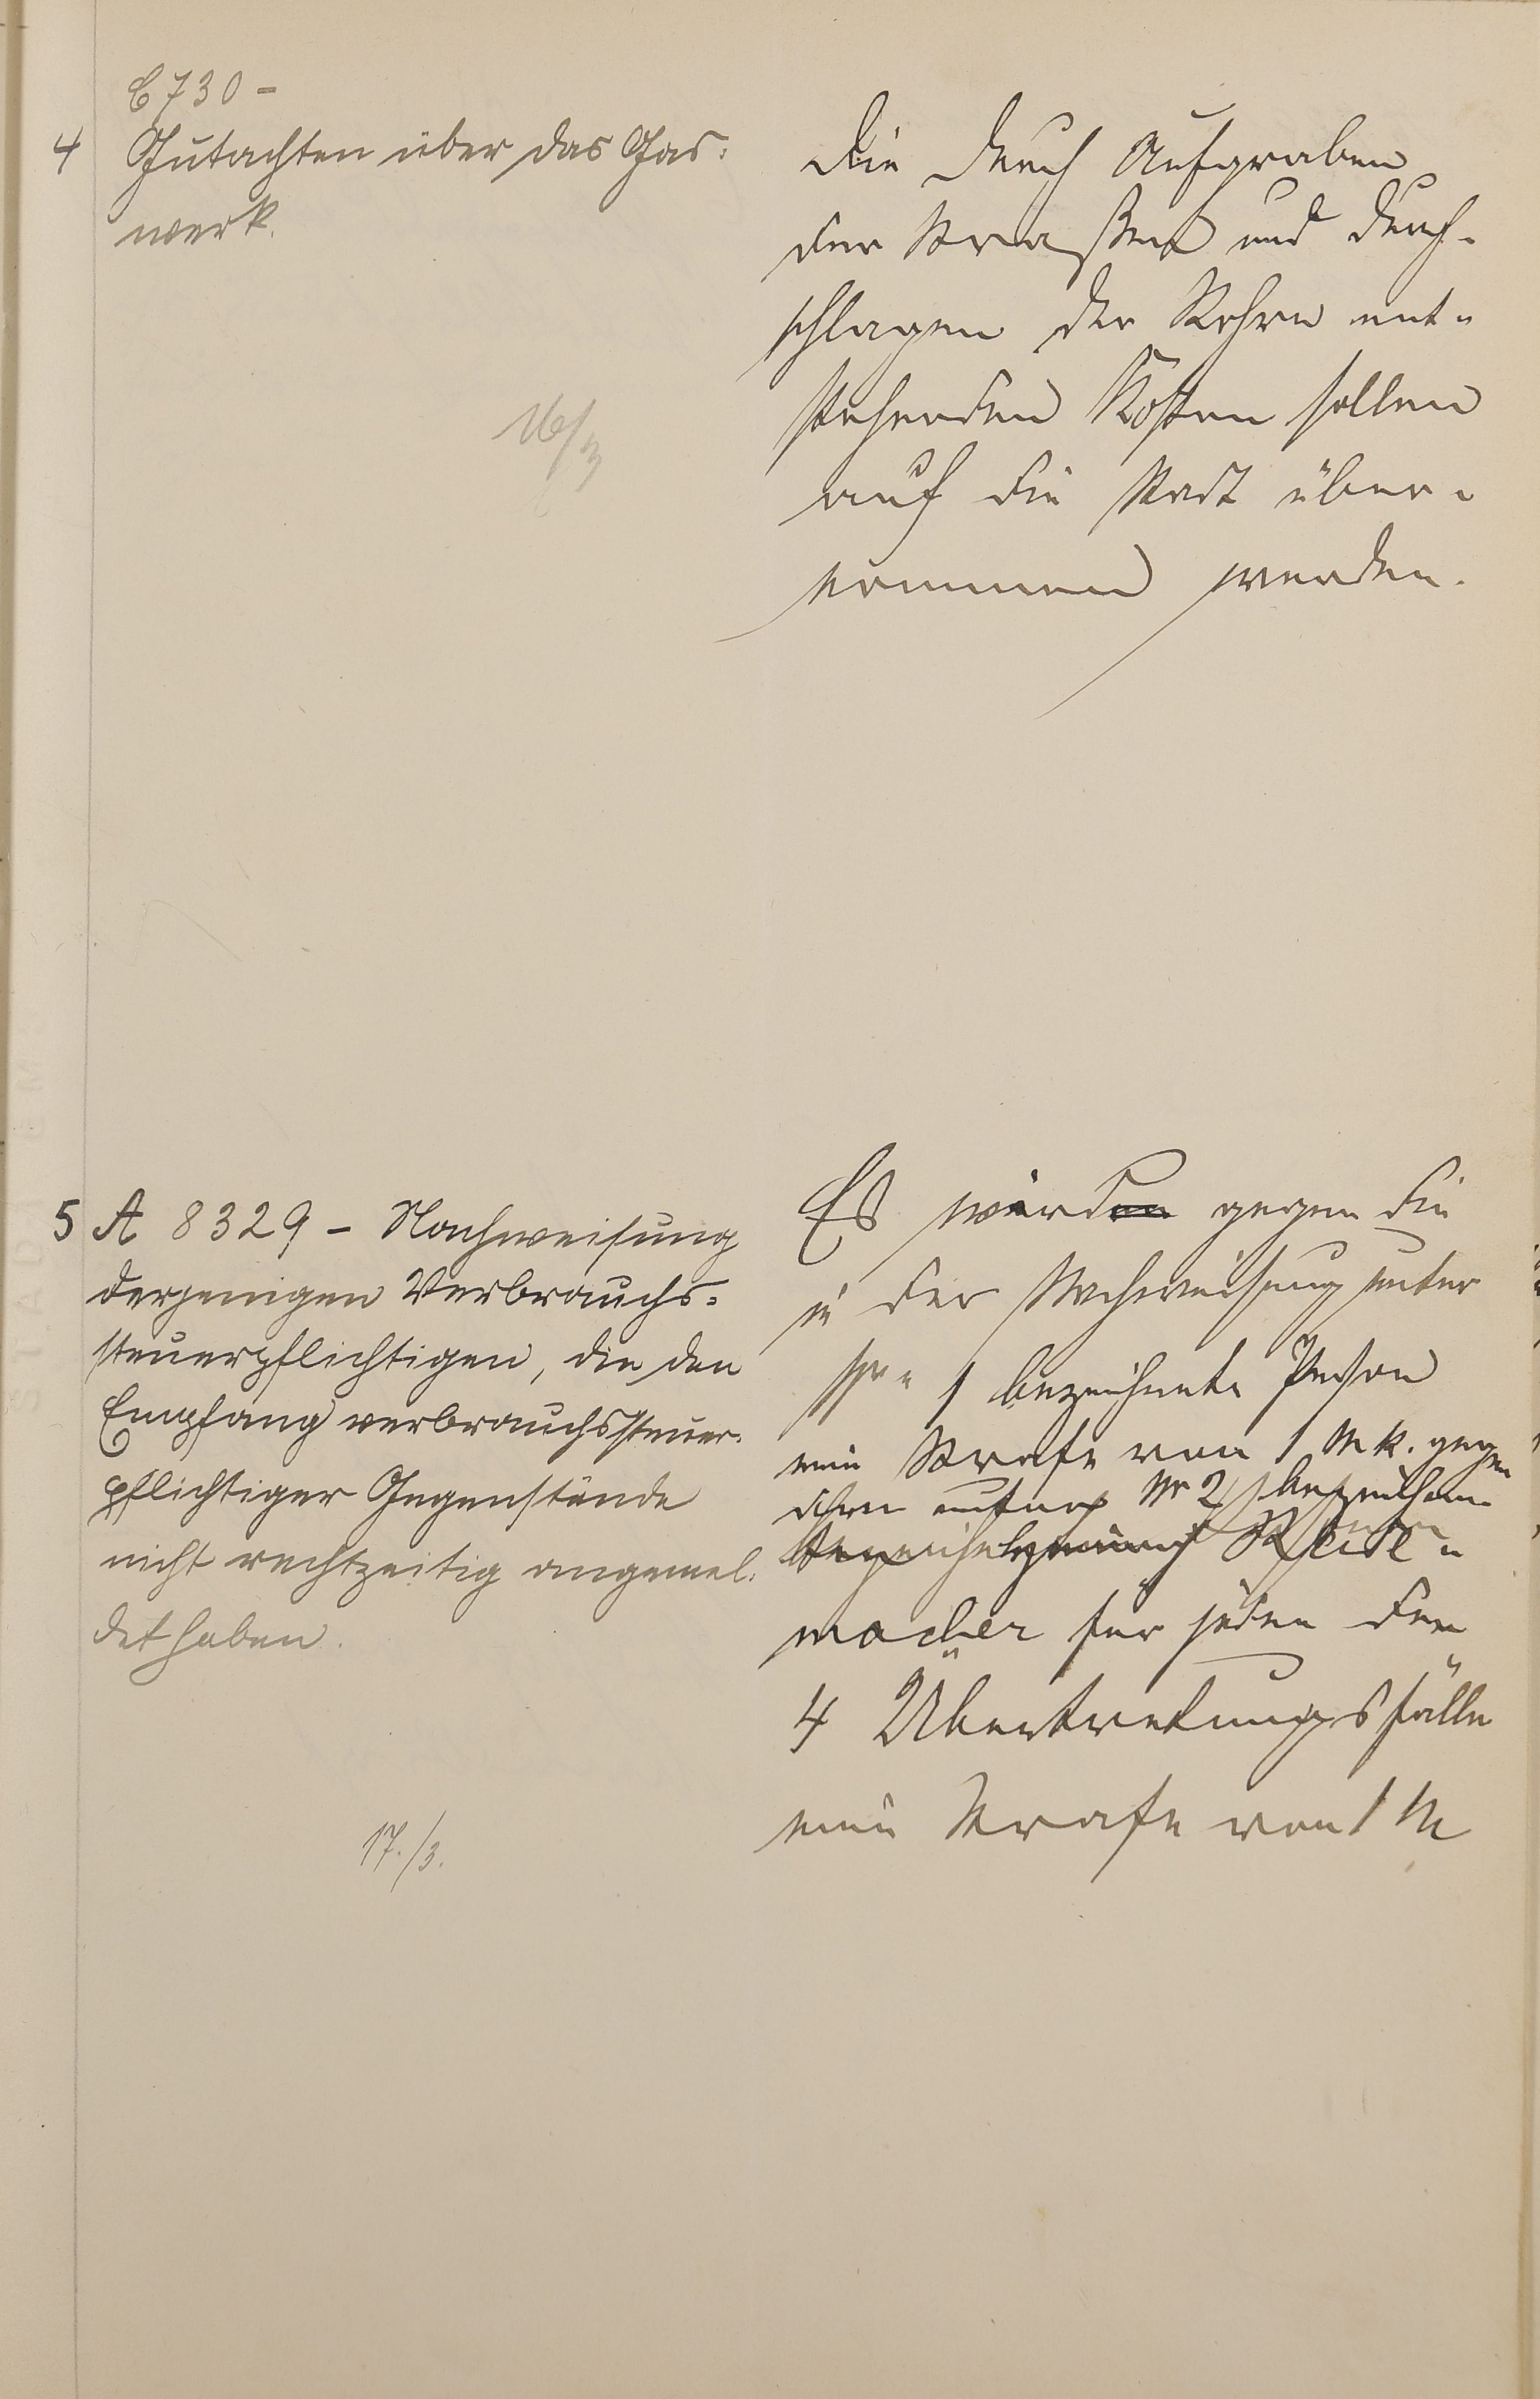 C 730 -
4 Gutachten über das Gas-
werk.
16/3
Die durch Aufgraben
der Straßen und Durch-
schlagen der Rohre ent-
stehenden Kosten sollen
auf die Stadt über-
nommen werden.
5 A 8329 - Nachweisung
derjenigen Verbrauchs-
steuerpflichtigen, die den
Empfang verbrauchssteuer-
pflichtiger Gegenstände
nicht rechtzeitig angemel-
det haben.
17./3.
Es wird gegen die
in der Nachweisung unter
1 bezeichnete Person
eine Strafe von 1 Mk. gegen
Nr 2
macher für jeden der
4 Übertretungsfälle
eine Strafe von 1 M